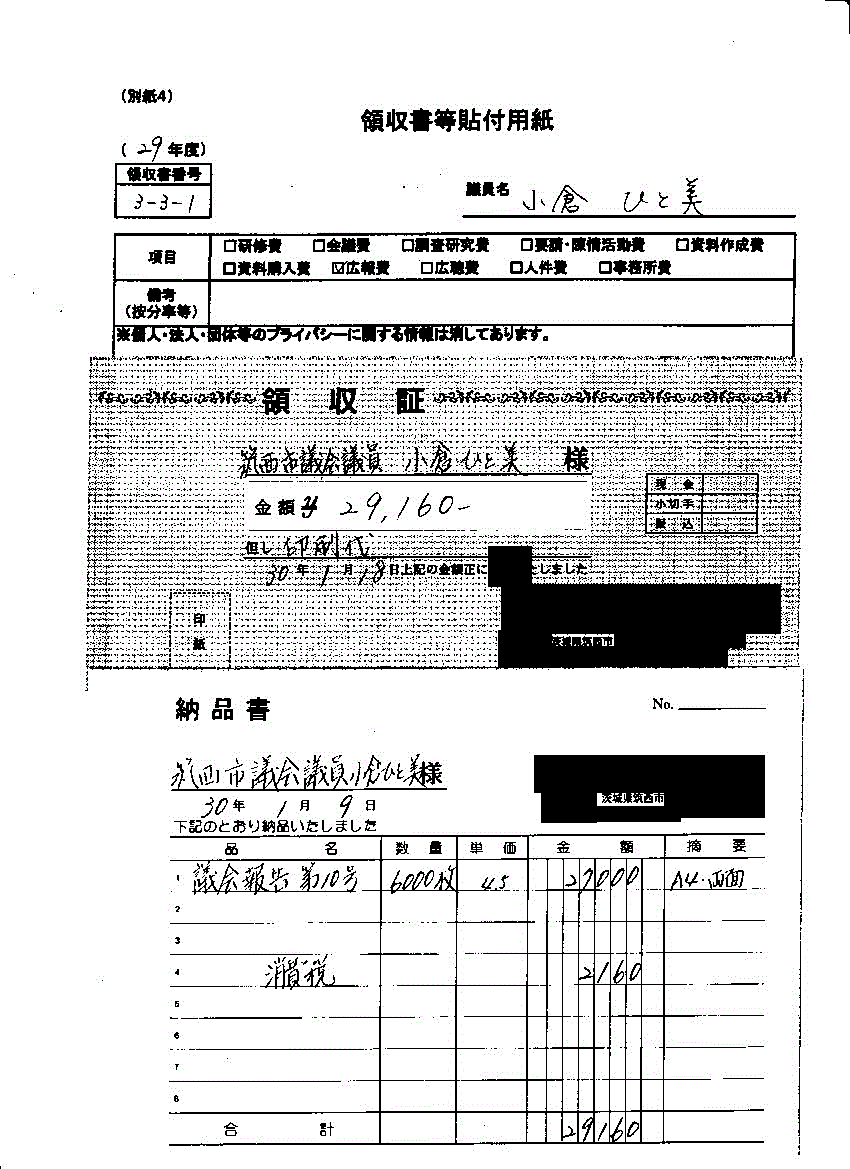 (別紙4)
領収書等貼付用紙
(29年度)
領収書番号
3-3-1
議員名 小倉 ひと美
項目 □研修費 □会議費 □調査研究費 □要請・陳情活動費 □資料作成費
□資料購入費 ☑広報費 □広聴費 □人件費 □事務所費
備考
(按分率等)
※個人・法人・団体等のプライバシーに関する情報は消してあります。
領収証
筑西市議会議員 小倉ひと美 様
金額 ¥ 29,160-
現金
小切手
振込
但し 印刷代
30年1月18日上記の金額正に たしました
印
紙
茨城県筑西市
納品書 No.
筑西市議会議員小倉ひと美様
茨城県筑西市
30年1月9日
下記のとおり納品いたしました
品名 数量 単価 金額 摘要
1 議会報告 第10号 6000枚 4.5 27000 A4・両面
2
3
4 消費税 2160
5
6
7
8
合計 29160